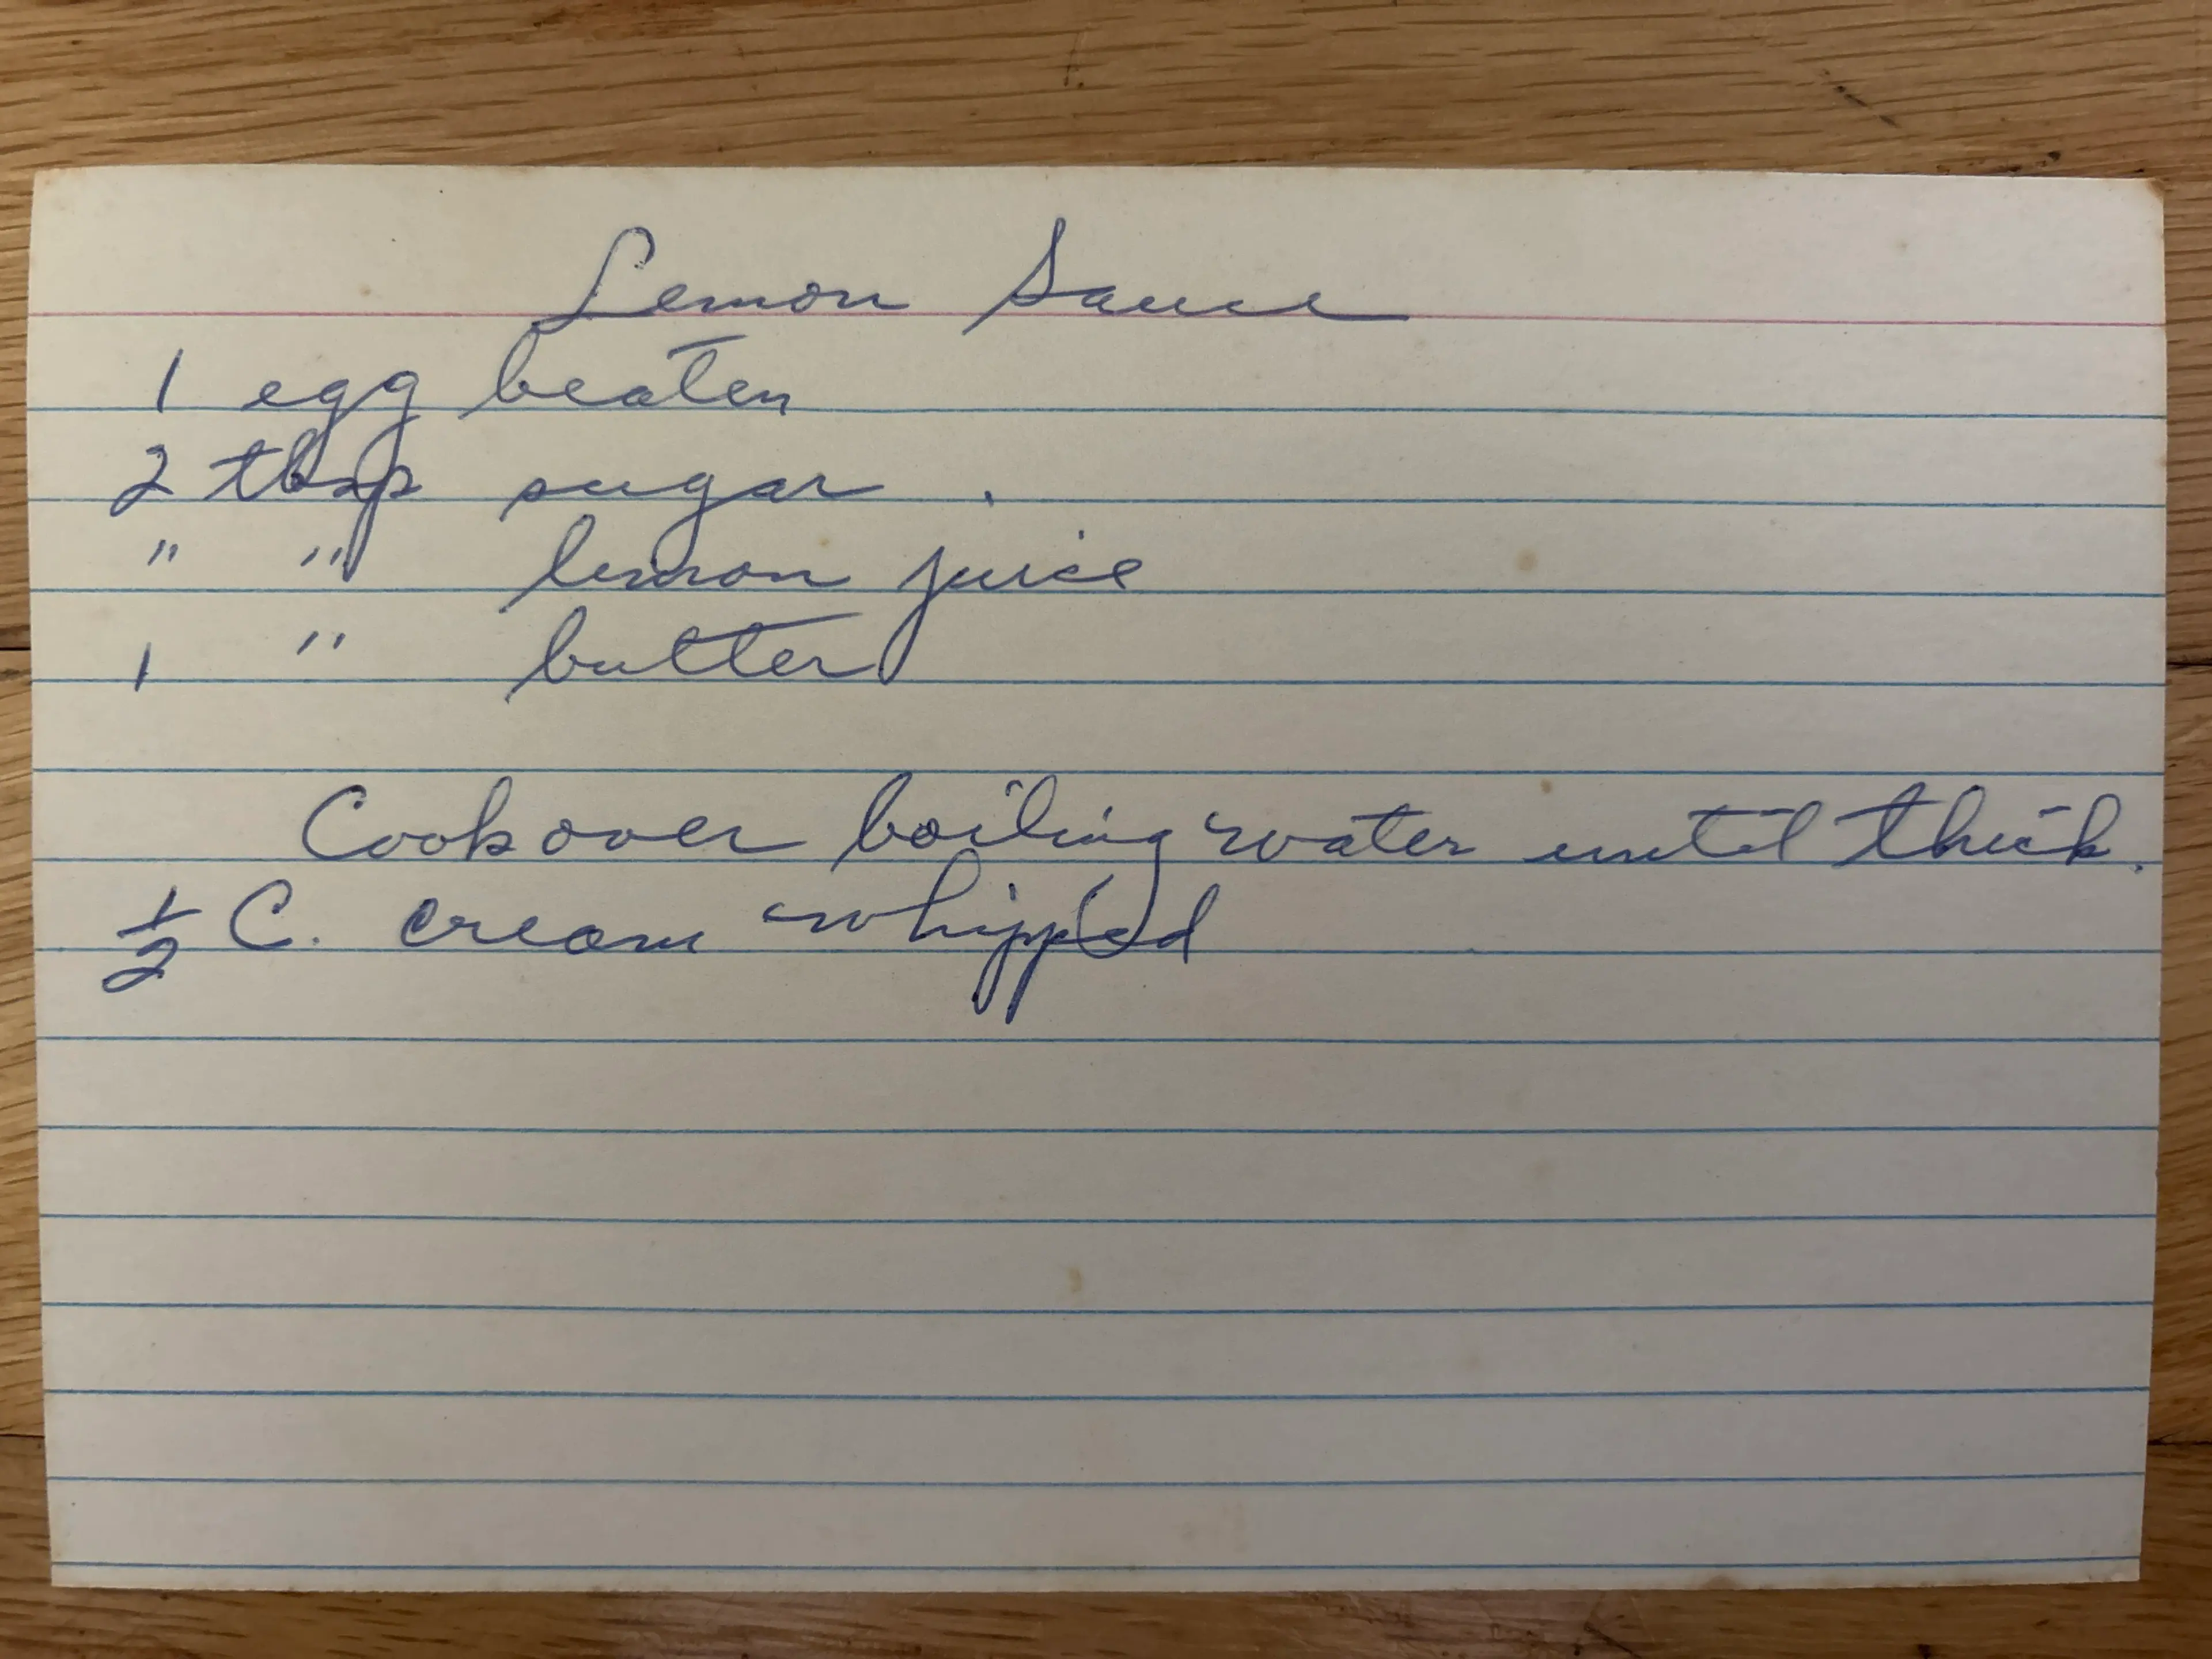 Lemon Sauce
1 egg beaten
2 tbsp sugar .
" " lemon juice
1 " butter
Cook over boiling water until thick.
1/2 C. cream whipped